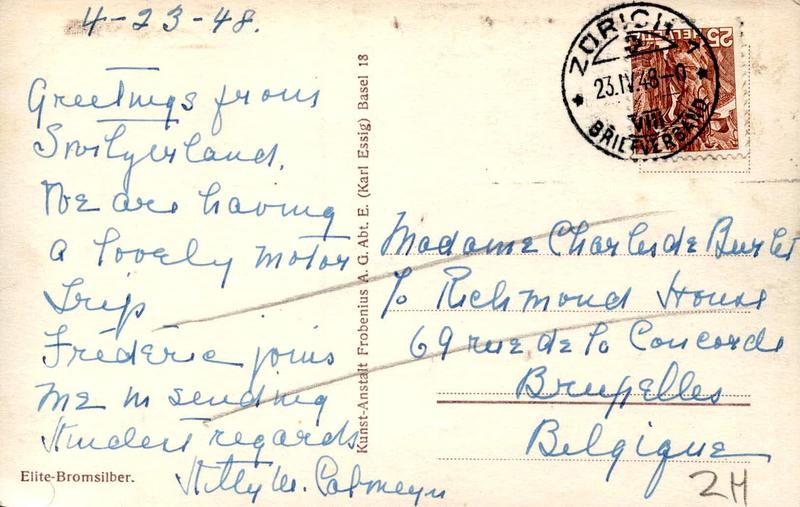 4-23-48.
Greetings from
Switzerland.
We are having
a lovely motor
trip
Frédéric joins
me in sending
kindest regards
Elite-Bromsilber.
Kunst-Anstalt Frobenius A. G. Abt. E. (Karl Essig) Basel 18
ZÜRICH 1
2
23.IV.48-0
VIII
BRIEFVERSAND
25 HELVETIA
Madame Charles de Burlet
Richmond House
69 rue de la Concorde
Bruxelles
Belgique
2H